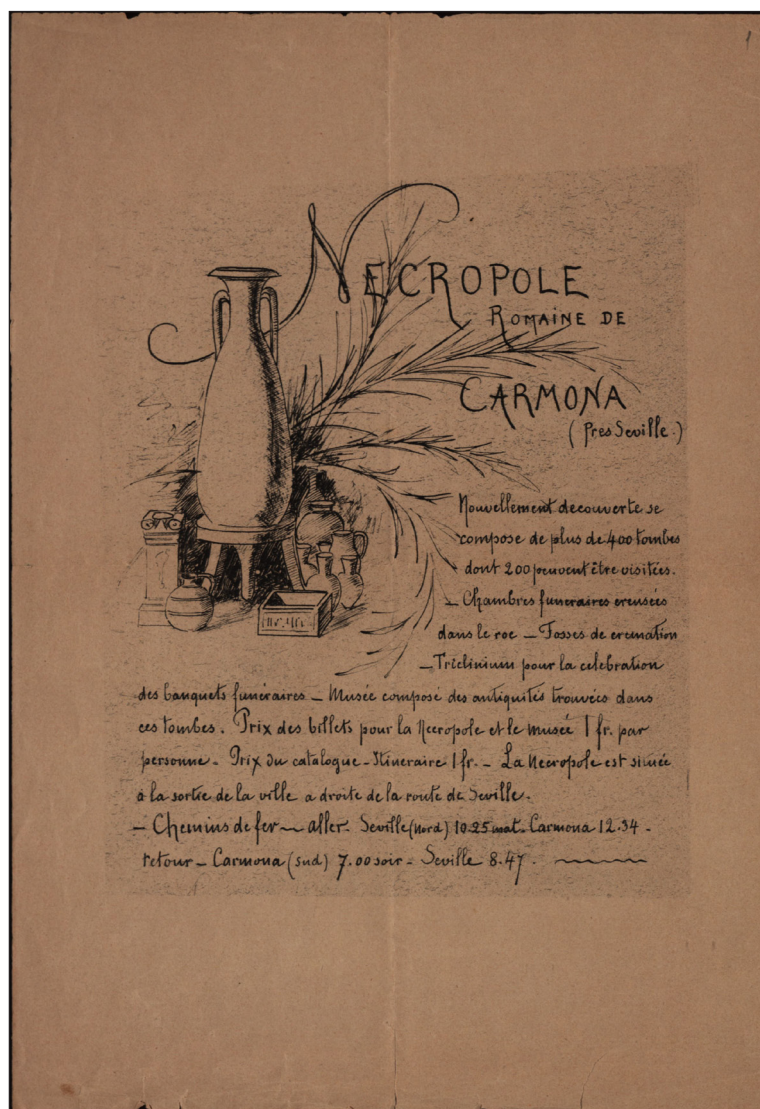 1
NECROPOLE
ROMAINE DE
CARMONA
(Pres Seville.)
Nouvellement decouverte se
compose de plus de 400 tombes
dont 200 peuvent être visitées.
– Chambres funeraires creusées
dans le roc – Fosses de cremation
– Triclinium pour la celebration
des banquets funéraires – Musée composé des antiquités trouvées dans
ces tombes. Prix des billets pour la Necropole et le musée 1 fr. par
personne – Prix du catalogue – Itineraire 1 fr. – La Necropole est située
a la sortie de la ville a droite de la route de Seville.
– Chemins de fer – aller. Seville (nord) 10.25 mat. Carmona 12.34 –
retour – Carmona (sud) 7.00 soir – Seville 8.47.